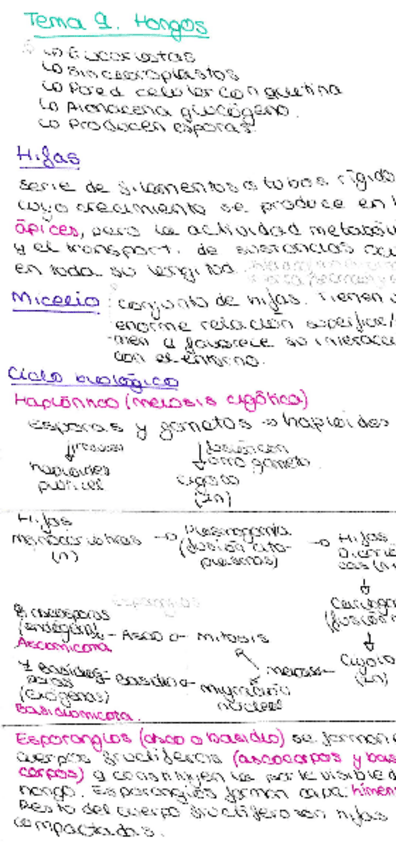 Tema 9. Hongos
↳ Eucariotas
↳ Sin cloroplastos
↳ Pared celular con quitina
↳ Almacena glucógeno.
↳ Producen esporas
Hifas
serie de filamentos o tubos rígido
cuyo crecimiento se produce en l
ápices, pero la actividad metaból
y el transport. de sustancias
en toda su longitud.
Micelio: conjunto de hifas. Tienen
enorme relación superfic/
men q favorece su interacc
con el entorno.
Ciclo biológico
Haplóntico (meiosis cigótica)
Esporas y gametos → haploides
haploides
pluricel
fusión con
otro gameto
cigoto
(2n)
Hifas
monocarióticas
(n)
→ Plasmogamia
(fusión cito-
plasmas)
→ Hifas
Cariogam
(fusión n
Cigoto
(2n)
meiosis
Esporangios
8 ascosporas
(endógenas) - Asco ← mitosis
Ascomicota
4 basidios-
poras
(exógenas)
- Basidio ←
núcleos
Basidiomicota
Esporangios (asco o basidio) se forman e
cuerpos fructíferos (ascocarpos y bas
carpos) q constituyen la parte visible d
hongo. Esporangios forman capa: himen
Resto del cuerpo fructífero son hifas
compactadas.